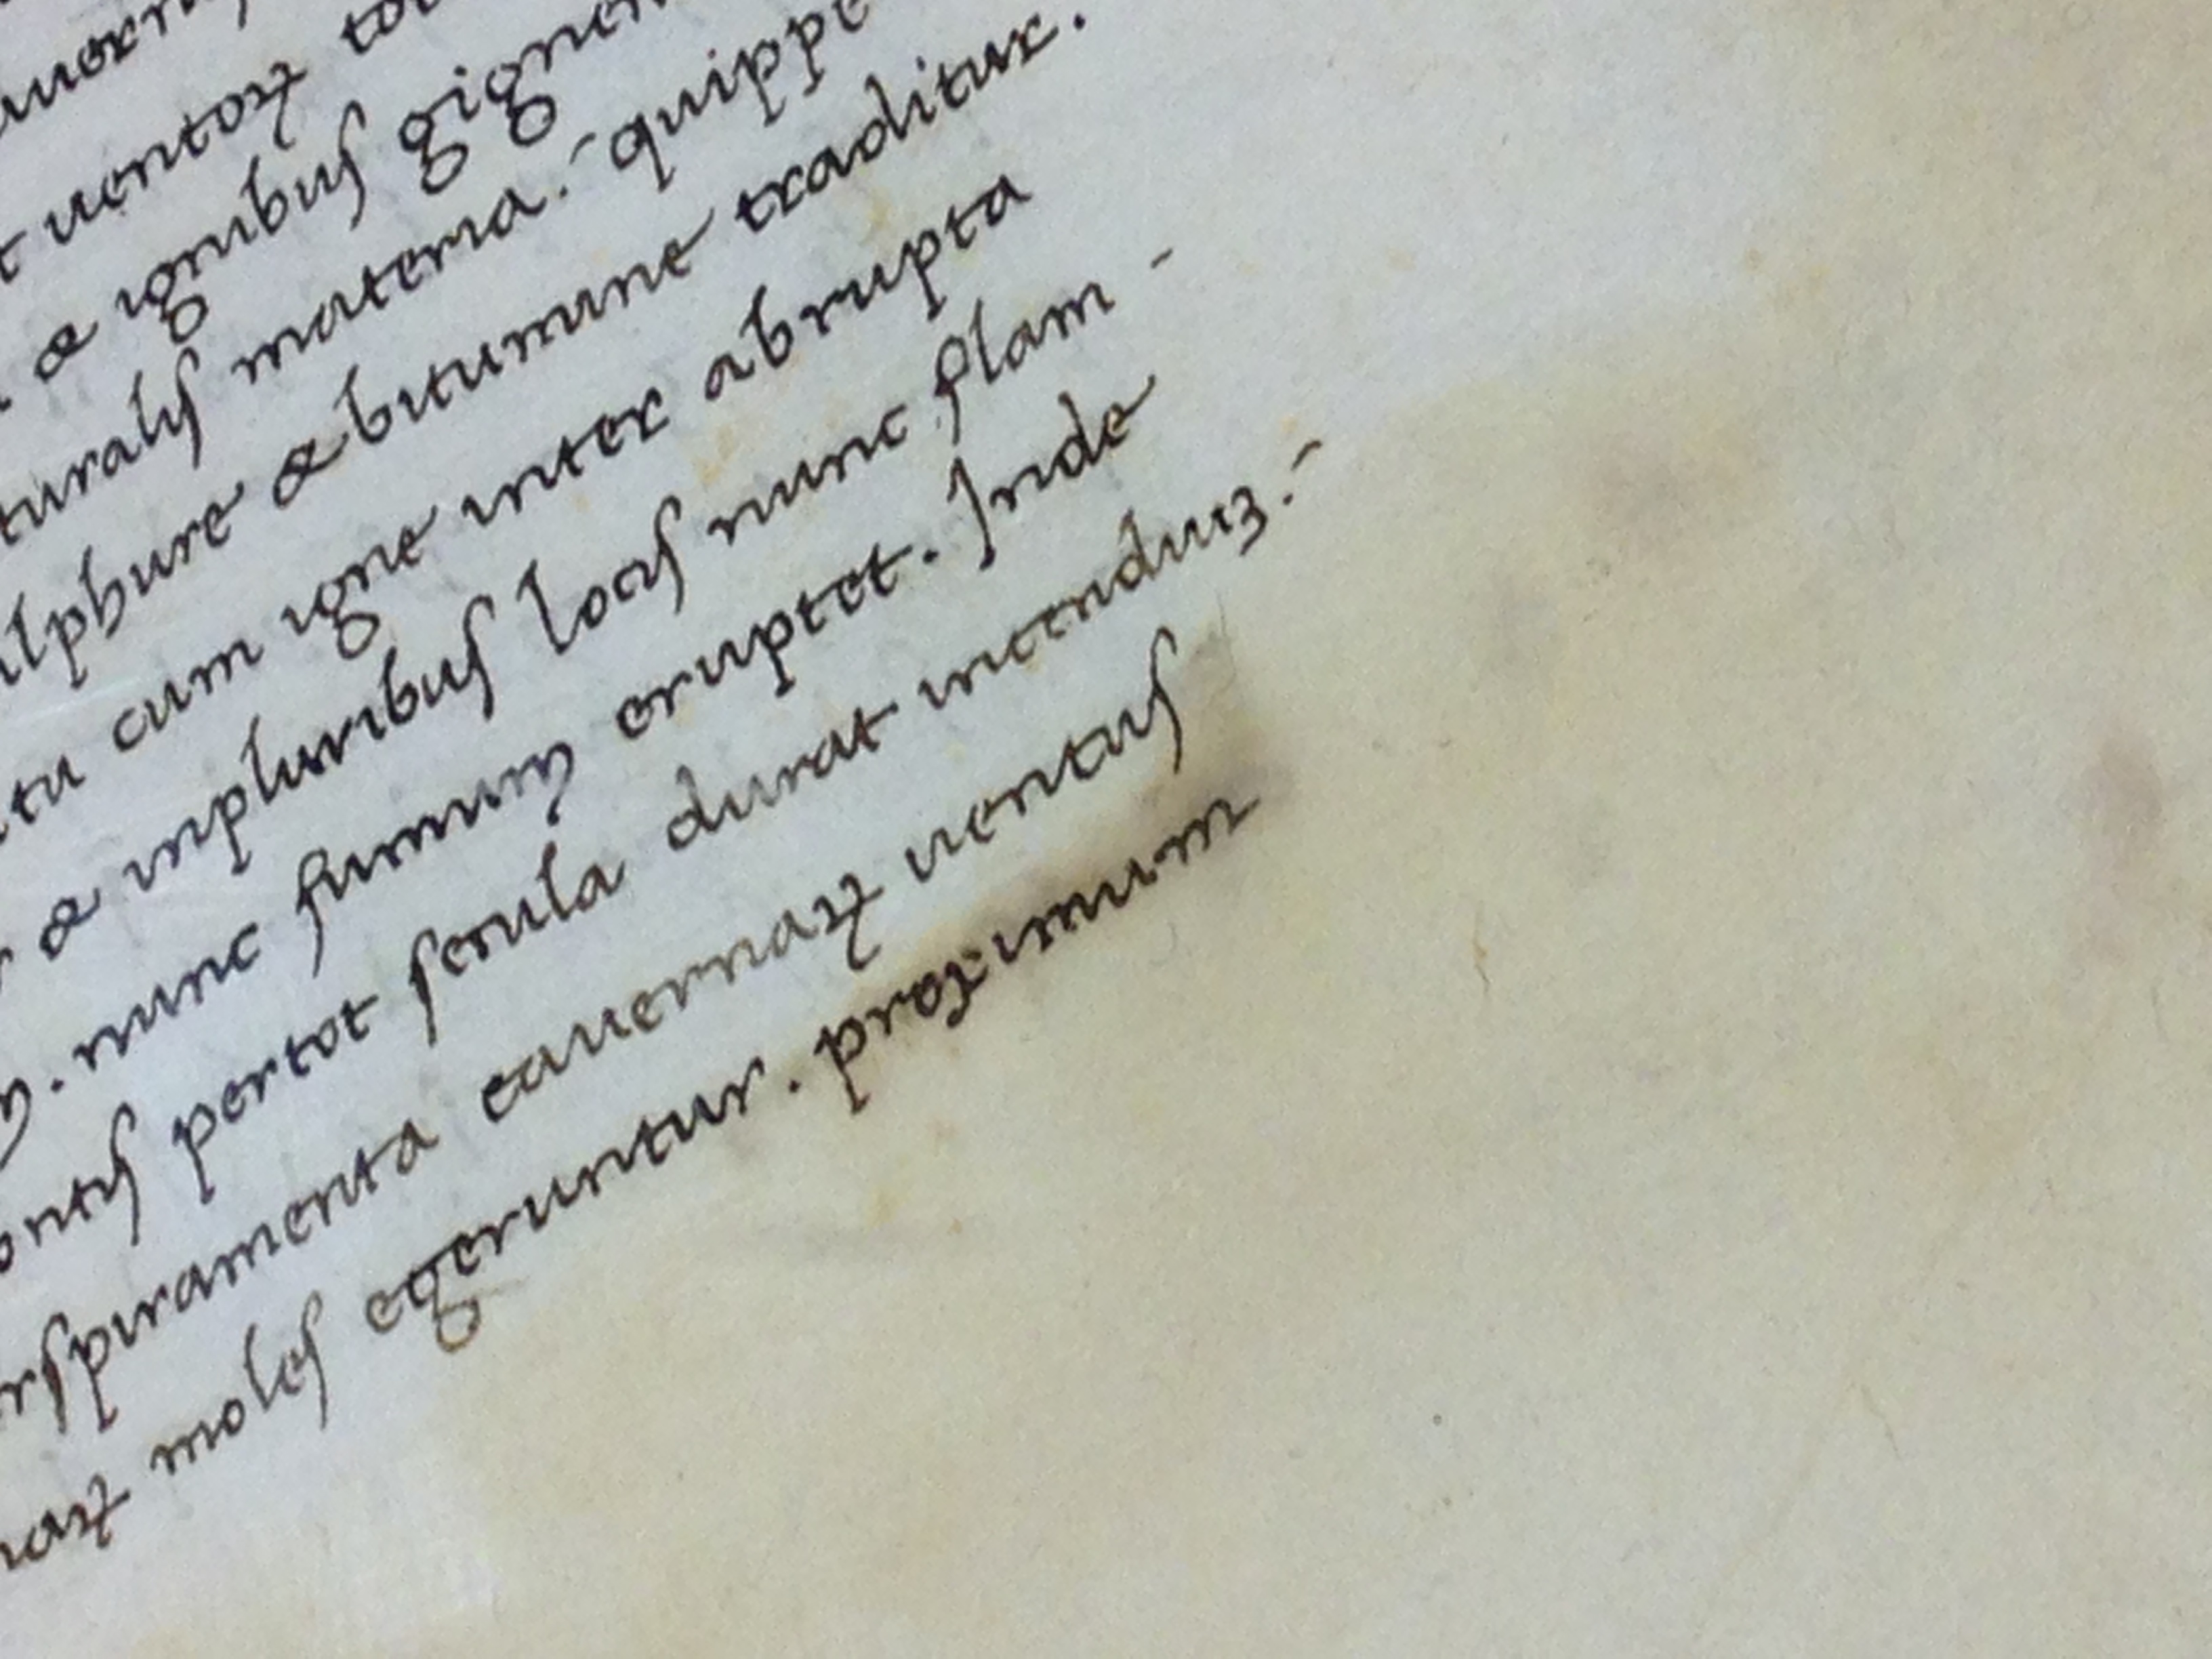 t uentoꝝ to
& ignibuſ gignen
turaliſ materia. quippe
ulphure & bitumine traditur.
tu cum igne inter abrupta
& inpluribuſ lociſ nunc flam-
. nunc fumum eruptet. Inde
ontiſ pertot ſecula durat incendiuꝫ.
rſpiramenta cauernaꝝ uentuſ
naꝝ moleſ egeruntur. proximum